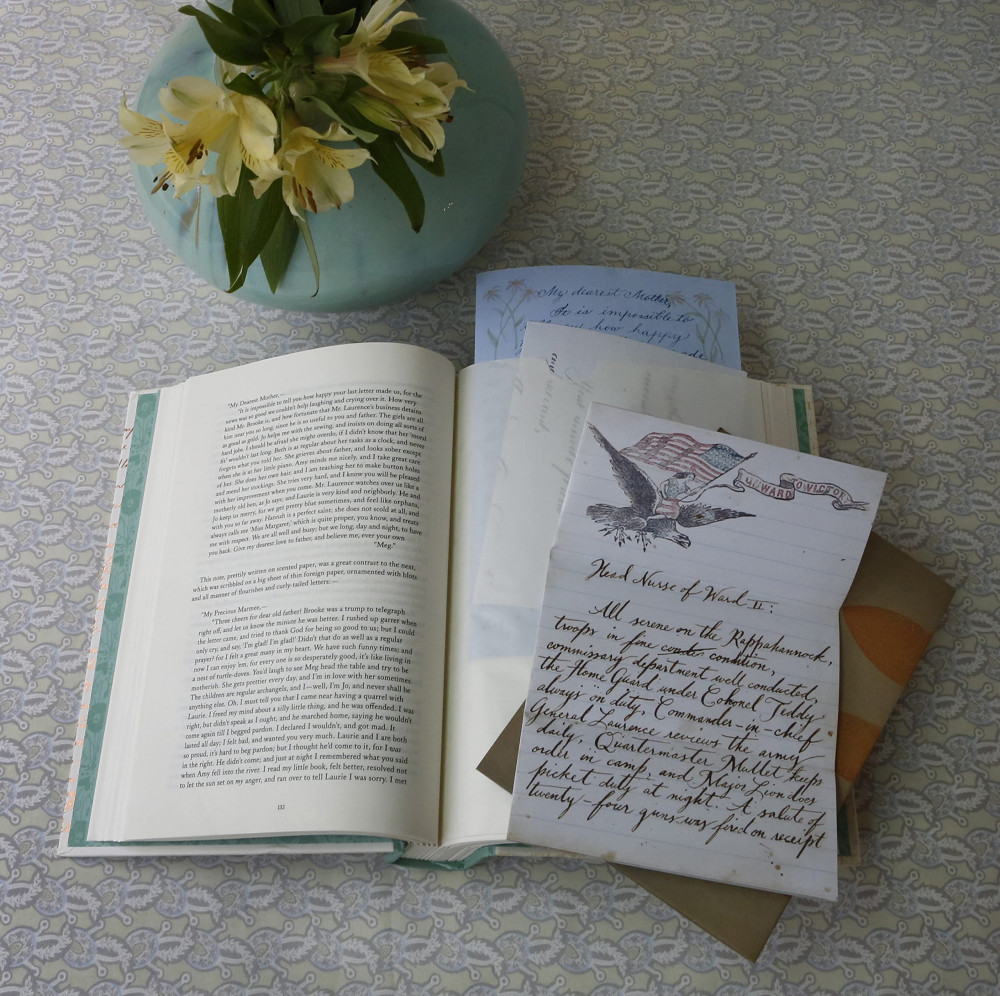 My dearest Mother,
It is impossible to
how happy
"My Dearest Mother,—
"It is impossible to tell you how happy your last letter made us, for the
news was so good we couldn't help laughing and crying over it. How very
kind Mr. Brooke is, and how fortunate that Mr. Laurence's business detains
him near you so long, since he is so useful to you and father. The girls are all
as good as gold. Jo helps me with the sewing, and insists on doing all sorts of
hard jobs. I should be afraid she might overdo, if I didn't know that her 'moral
fit' wouldn't last long. Beth is as regular about her tasks as a clock, and never
forgets what you told her. She grieves about father, and looks sober except
when she is at her little piano. Amy minds me nicely, and I take great care
of her. She does her own hair, and I am teaching her to make button holes
and mend her stockings. She tries very hard, and I know you will be pleased
with her improvement when you come. Mr. Laurence watches over us like a
motherly old hen, as Jo says; and Laurie is very kind and neighborly. He and
Jo keep us merry, for we get pretty blue sometimes, and feel like orphans,
with you so far away. Hannah is a perfect saint; she does not scold at all, and
always calls me 'Miss Margaret,' which is quite proper, you know, and treats
me with respect. We are all well and busy; but we long, day and night, to have
you back. Give my dearest love to father, and believe me, ever your own
"Meg."
This note, prettily written on scented paper, was a great contrast to the next,
which was scribbled on a big sheet of thin foreign paper, ornamented with blots
and all manner of flourishes and curly-tailed letters:—
"My Precious Marmee,—
"Three cheers for dear old father! Brooke was a trump to telegraph
right off, and let us know the minute he was better. I rushed up garret when
the letter came, and tried to thank God for being so good to us; but I could
only cry, and say, 'I'm glad! I'm glad!' Didn't that do as well as a regular
prayer? for I felt a great many in my heart. We have such funny times; and
now I can enjoy 'em, for every one is so desperately good, it's like living in
a nest of turtle-doves. You'd laugh to see Meg head the table and try to be
motherish. She gets prettier every day, and I'm in love with her sometimes.
The children are regular archangels, and I—well, I'm Jo, and never shall be
anything else. Oh, I must tell you that I came near having a quarrel with
Laurie. I freed my mind about a silly little thing, and he was offended. I was
right, but didn't speak as I ought, and he marched home, saying he wouldn't
come again till I begged pardon. I declared I wouldn't, and got mad. It
lasted all day; I felt bad, and wanted you very much. Laurie and I are both
so proud, it's hard to beg pardon; but I thought he'd come to it, for I was
in the right. He didn't come; and just at night I remembered what you said
when Amy fell into the river. I read my little book, felt better, resolved not
to let the sun set on my anger, and ran over to tell Laurie I was sorry. I met
Head Nurse of Ward II:
All serene on the Rappahannock,
troops in fine condition,
commissary department well conducted,
the Home Guard under Colonel Teddy
always on duty, Commander-in-chief
General Laurence reviews the army
daily, Quartermaster Mullet keeps
order in camp, and Major Lion does
picket duty at night. A salute of
twenty-four guns was fired on receipt